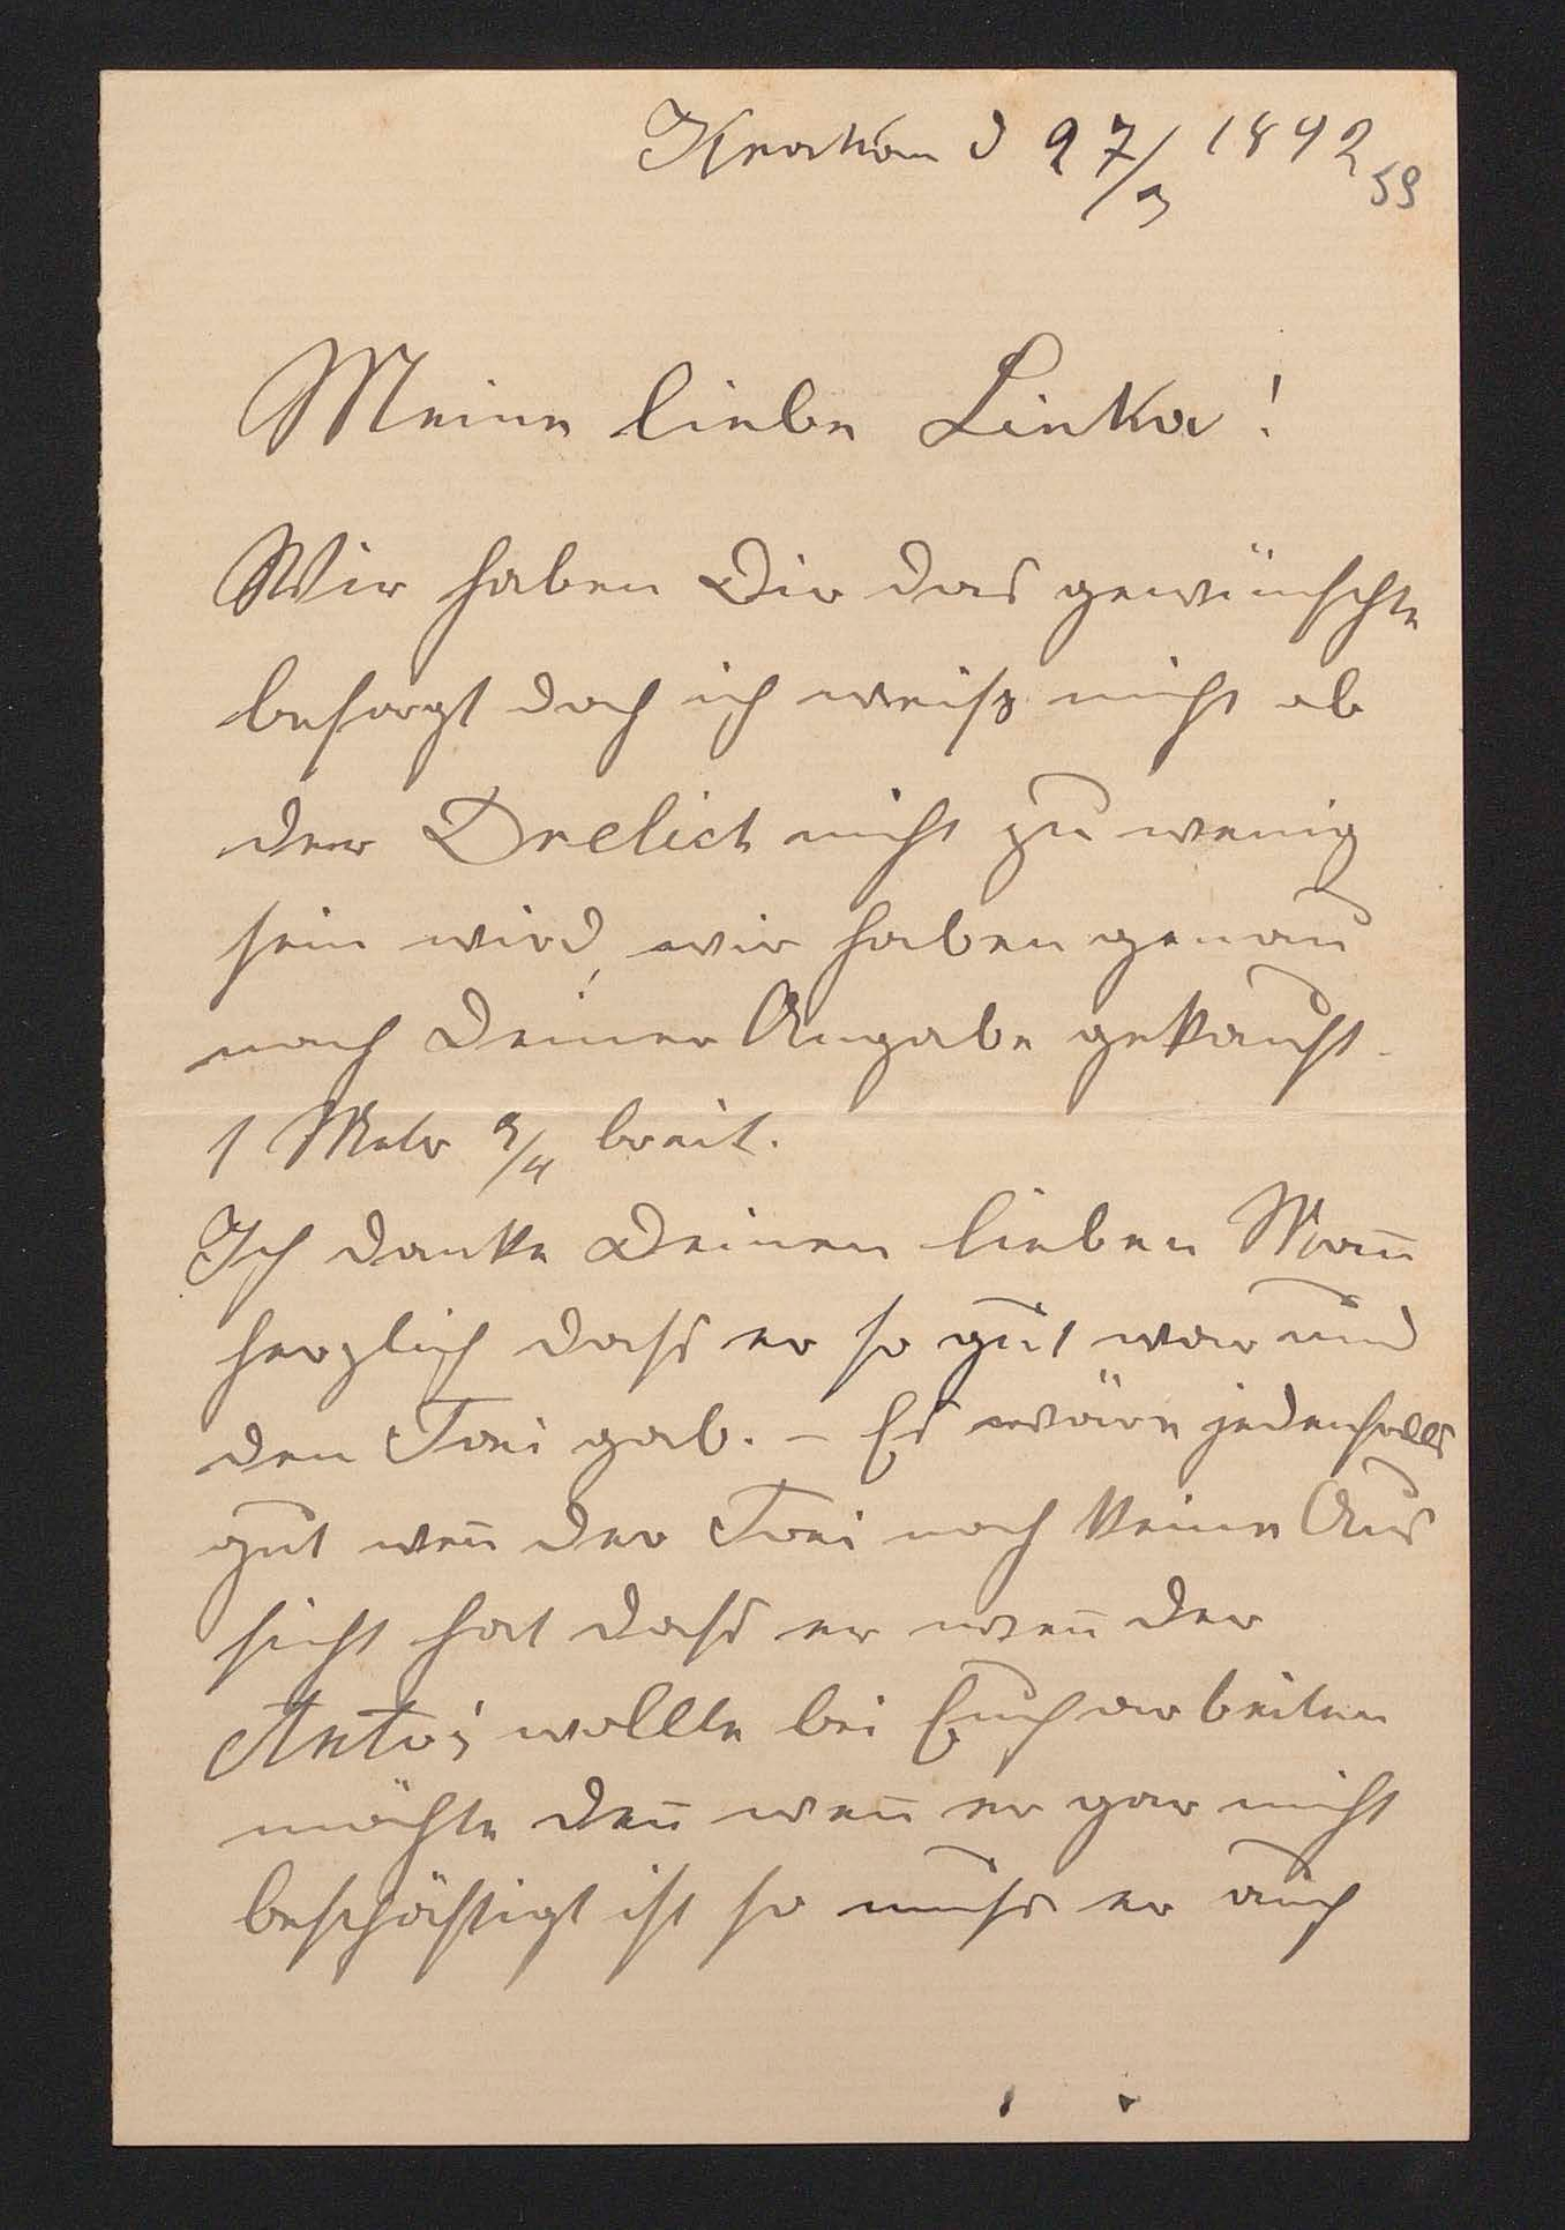 Krakau d 27/3 1892
59
Meine liebe Linka!
Wir haben Dir das gewünschte
besorgt doch ich weiß nicht ob
der Drelich nicht zu wenig
sein wird, wir haben genau
nach Deiner Angabe gekauft.
1 Metr 9/4 breit.
Ich danke Deinen lieben Man̄
herzlich dass er so gut war und
den Frei gab. – Es wäre jedenfalls
gut wen̄ der Frei noch keine Aus
sicht hat dass er wen̄ der
Antoś wollte bei Euch arbeiten
möchte den̄ wen̄ er gar nicht
beschäftigt ist so muss er auch